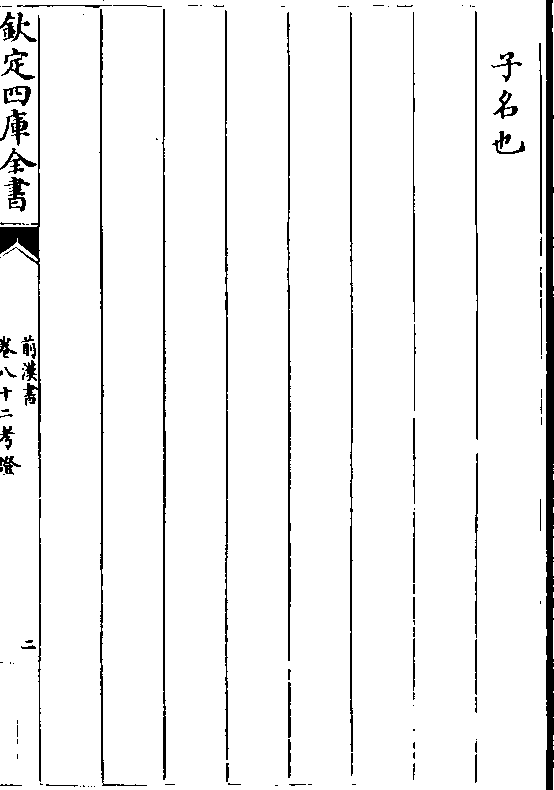 子名也
欽定四庫全書
前漢書
卷八十二考證
二